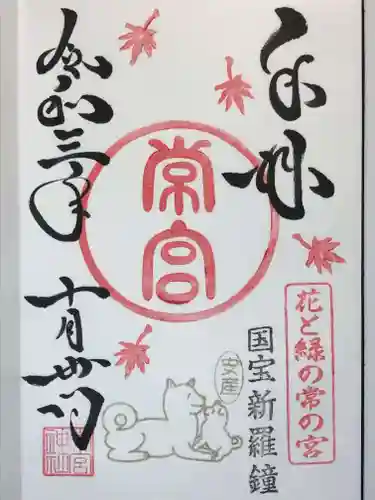 奉拝
花と緑の常の宮
国宝新羅鐘
安産
常宮
令和三年十月廿一日
常宮神社